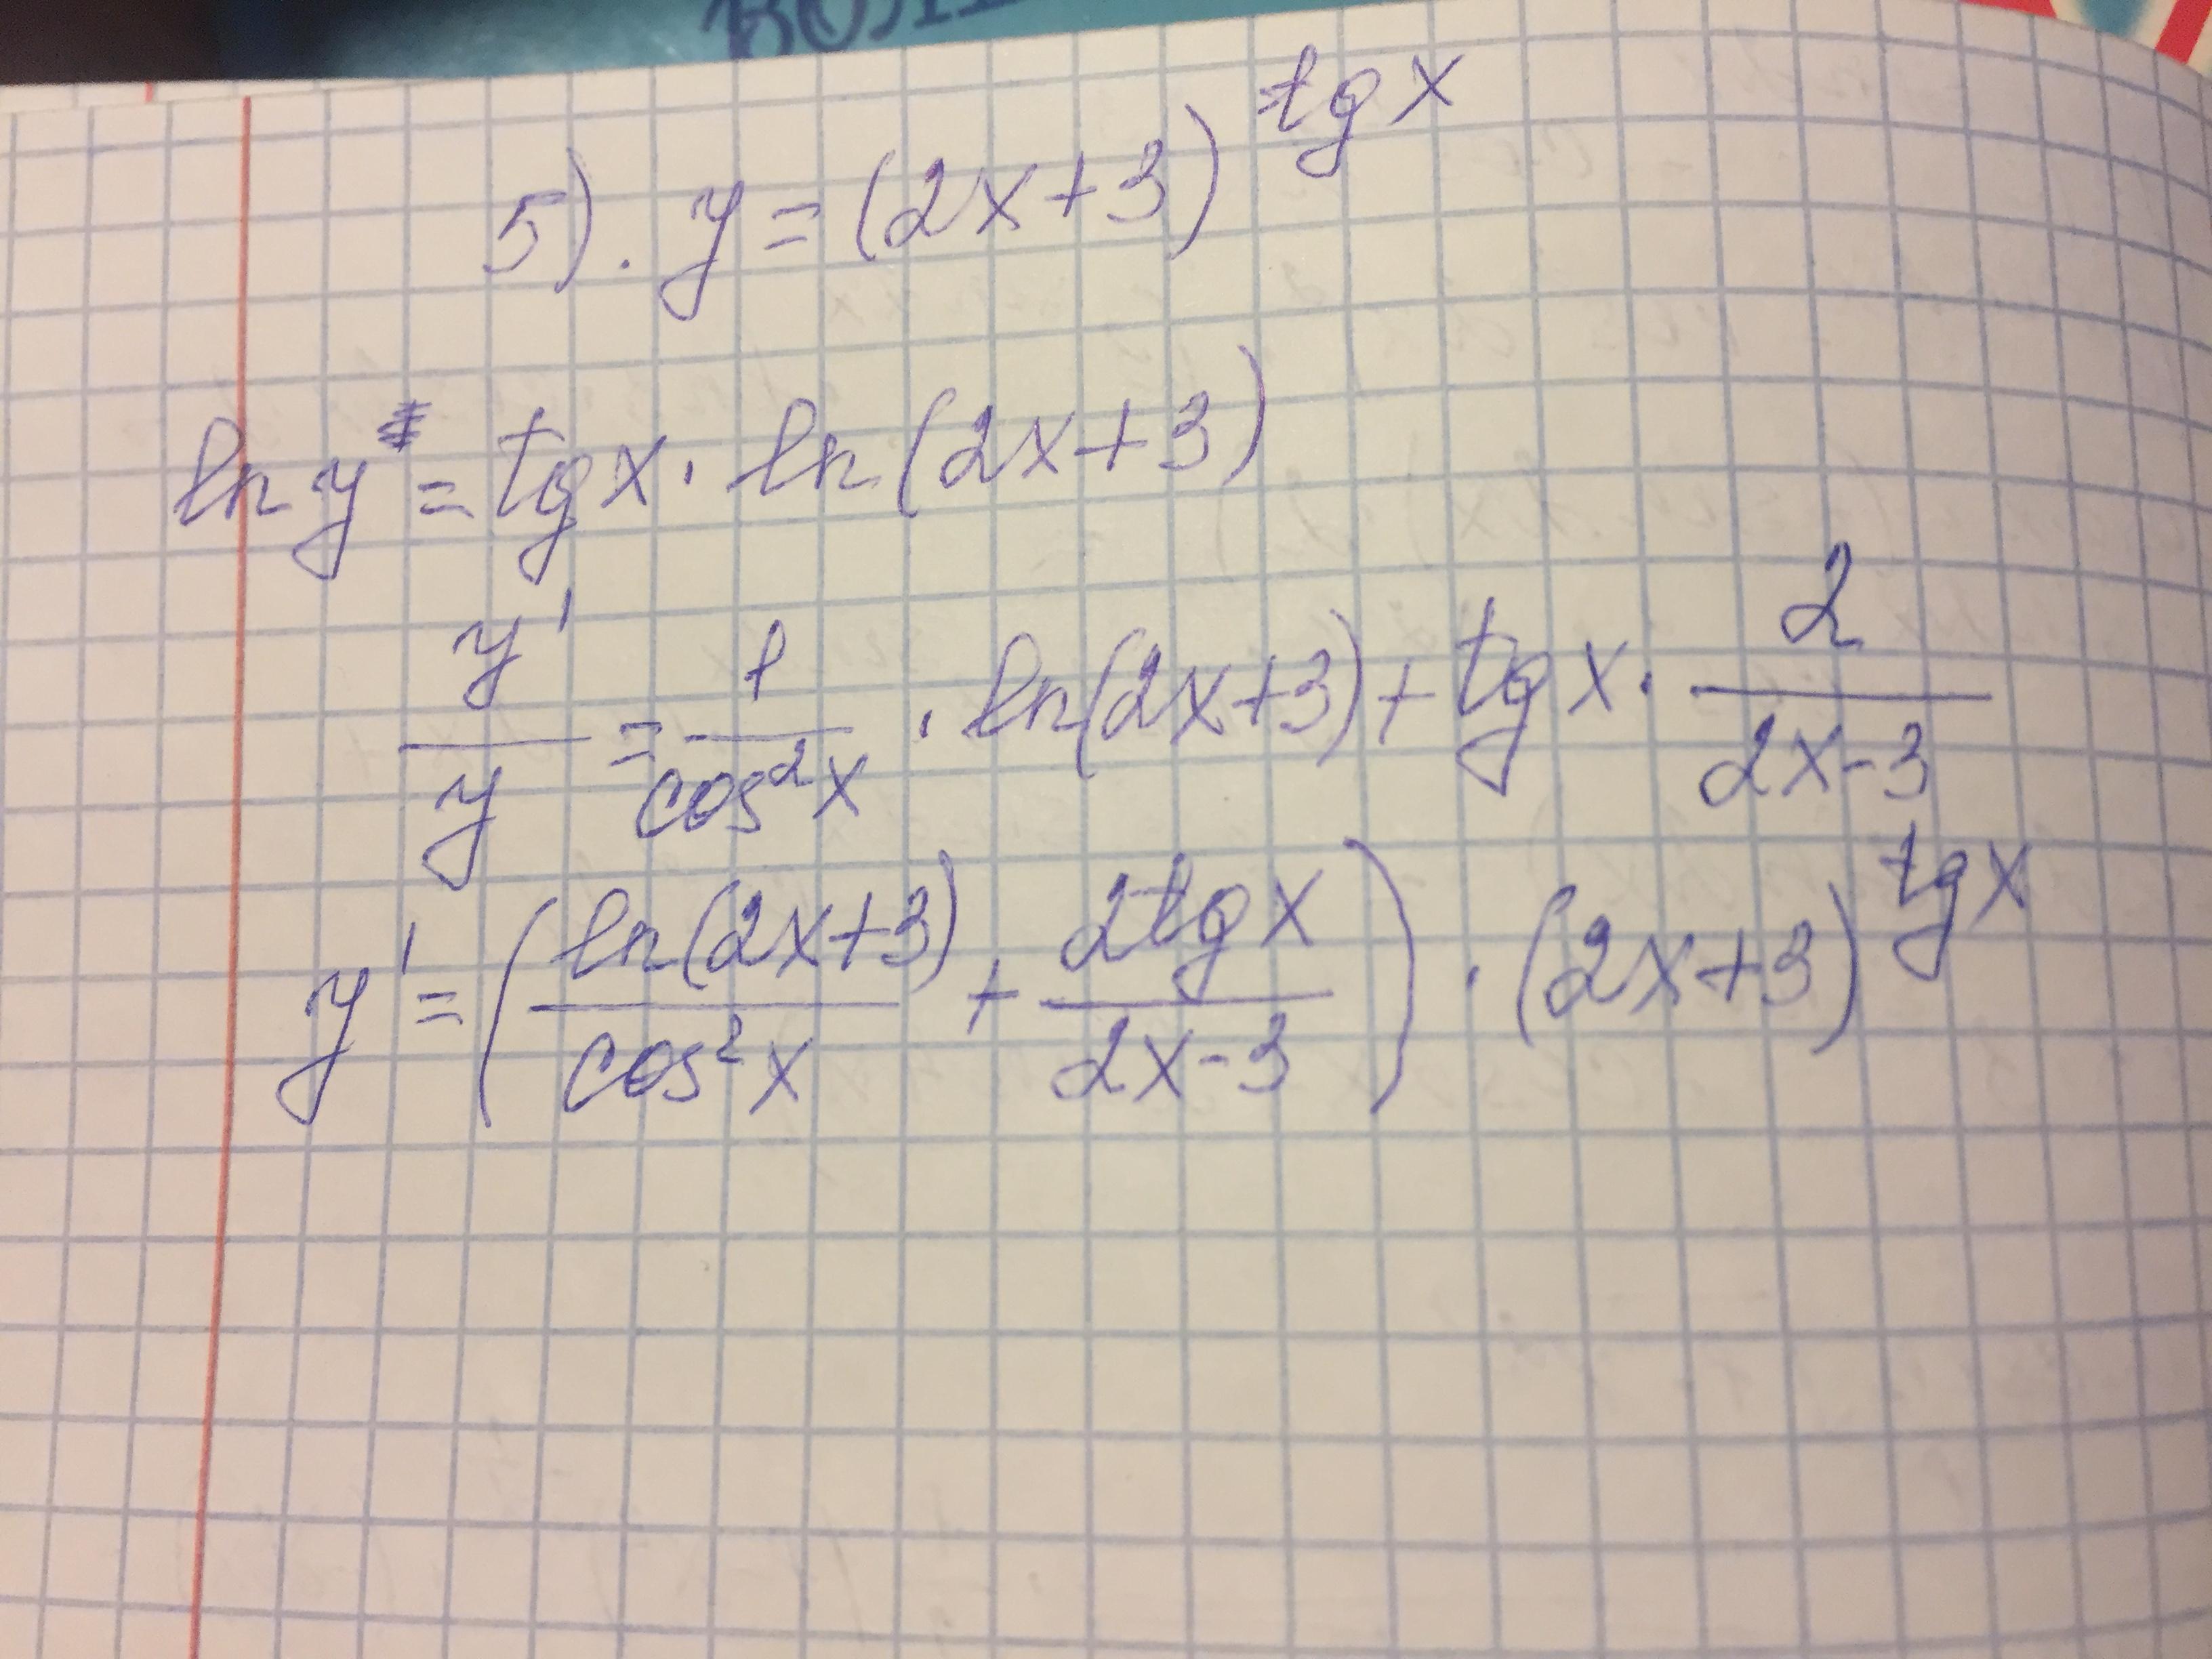 5). y = (2x+3)^{tg x}
ln y = tg x · ln (2x+3)
\frac{y'}{y} = \frac{1}{cos^2 x} · ln(2x+3) + tg x · \frac{2}{2x-3}
y' = (\frac{ln(2x+3)}{cos^2 x} + \frac{2tg x}{2x-3}) · (2x+3)^{tg x}